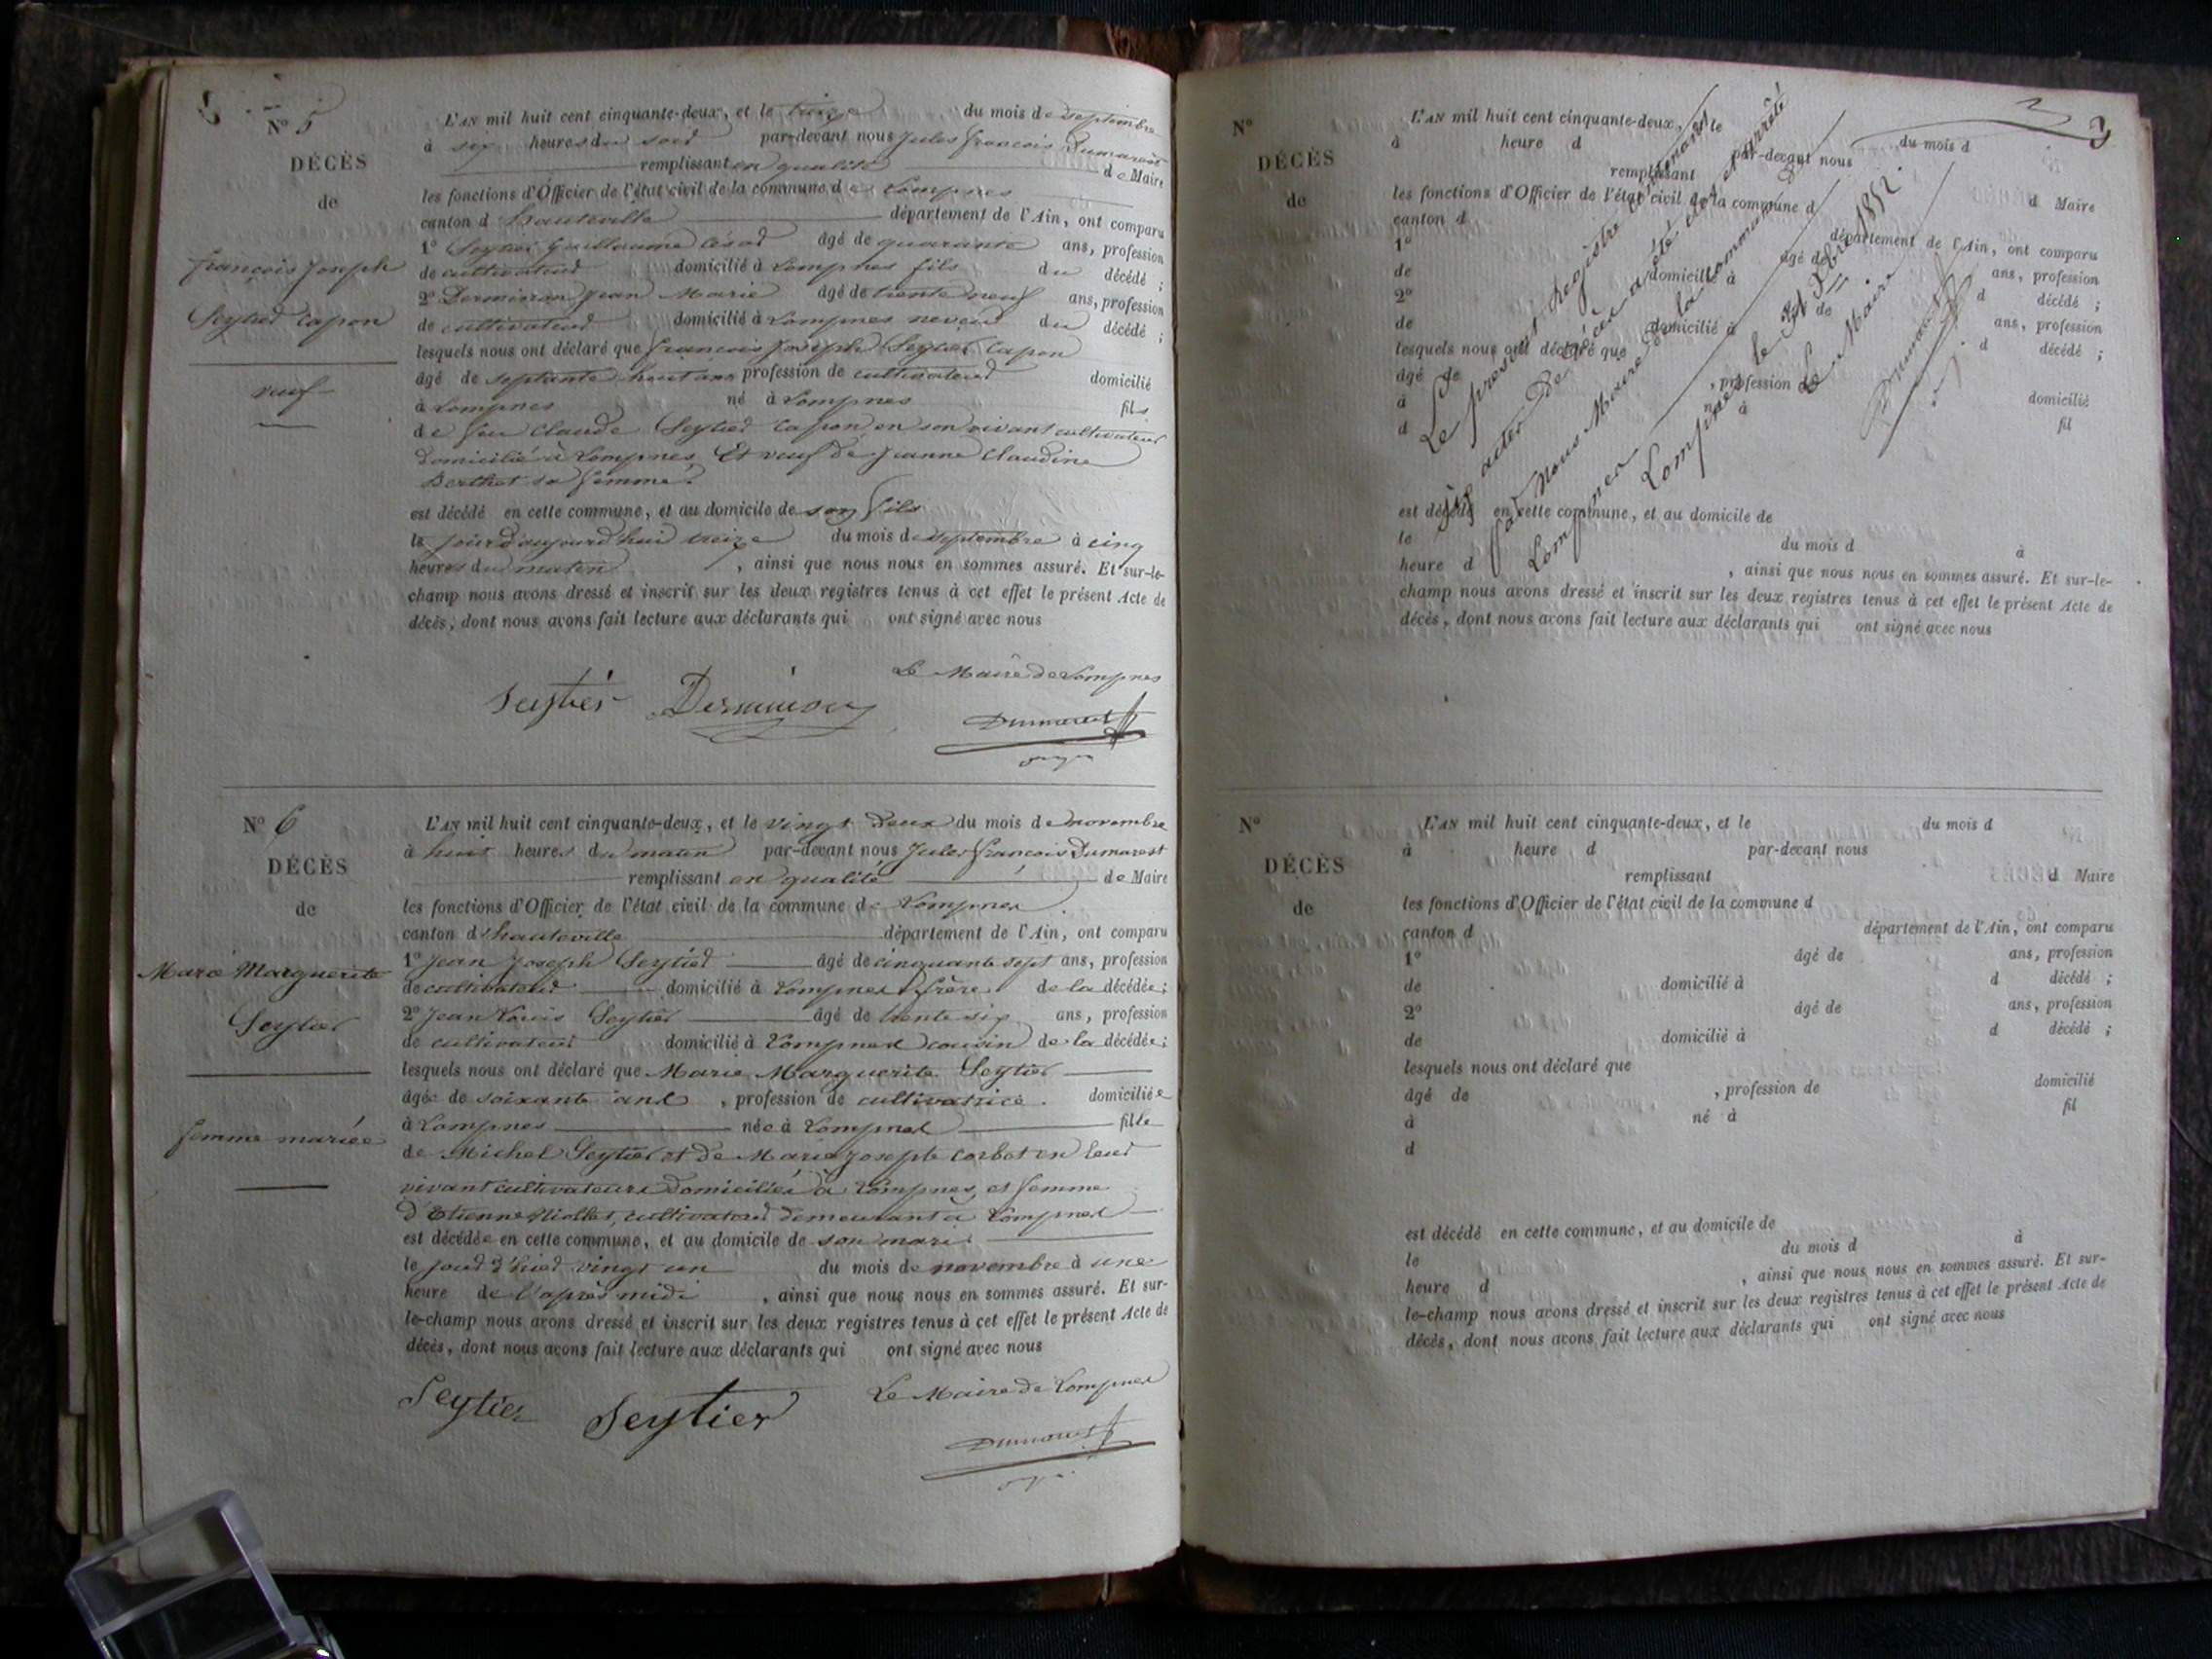 N° 5
DÉCÈS
de
françois Joseph
Seytier Capon
veuf
L'AN mil huit cent cinquante-deux, et le treize du mois de septembre
à six heures du soir par-devant nous Jules françois Dumarest
remplissant en qualité de Maire
les fonctions d'Officier de l'état civil de la commune de Lompnes
canton d'hauteville département de l'Ain, ont comparu
1° Seytier Guillaume César âgé de quarante ans, profession
de cultivateur domicilié à Lompnes fils du décédé ;
2° Derminon Jean Marie âgé de trente neuf ans, profession
de cultivateur domicilié à Lompnes neveu du décédé ;
lesquels nous ont déclaré que françois Joseph Seytier Capon
âgé de septante huit ans profession de cultivateur domicilié
à Lompnes né à Lompnes fils
de feu Claude Seytier Capon en son vivant cultivateur
domicilié à Lompnes, Et veuf de Jeanne Claudine
Berthet sa femme.
est décédé en cette commune, et au domicile de son fils
le jour d'aujourd'hui treize du mois de septembre à cinq
heures du matin, ainsi que nous nous en sommes assuré. Et sur-le-
champ nous avons dressé et inscrit sur les deux registres tenus à cet effet le présent Acte de
décès, dont nous avons fait lecture aux déclarants qui ont signé avec nous
Le Maire de Lompnes
Seytier Derminon
Dumarest
N° 6
DÉCÈS
de
Marie Marguerite
Seytier
femme mariée
L'AN mil huit cent cinquante-deux, et le vingt deux du mois de novembre
à huit heures du matin par-devant nous Jules françois Dumarest
remplissant en qualité de Maire
les fonctions d'Officier de l'état civil de la commune de Lompnes
canton d'hauteville département de l'Ain, ont comparu
1° Jean Joseph Seytier âgé de cinquante sept ans, profession
de cultivateur domicilié à Lompnes frère de la décédée ;
2° Jean Louis Seytier âgé de trente six ans, profession
de cultivateur domicilié à Lompnes cousin de la décédée ;
lesquels nous ont déclaré que Marie Marguerite Seytier
âgée de soixante ans, profession de cultivatrice. domiciliée
à Lompnes née à Lompnes fille
de Michel Seytier et de Marie Joseph Corbet en leur
vivant cultivateurs domiciliés à Lompnes, et femme
d'Etienne Niollet, cultivateur demeurant à Lompnes
est décédée en cette commune, et au domicile de son mari
le jour d'hier vingt un du mois de novembre à une
heure de l'après midi, ainsi que nous nous en sommes assuré. Et sur-
le-champ nous avons dressé et inscrit sur les deux registres tenus à cet effet le présent Acte de
décès, dont nous avons fait lecture aux déclarants qui ont signé avec nous
Le Maire de Lompnes
Seytier Seytier
Dumarest
N°
DÉCÈS
de
L'AN mil huit cent cinquante-deux, et le du mois d
à heure d par-devant nous
remplissant d Maire
les fonctions d'Officier de l'état civil de la commune d
canton d département de l'Ain, ont comparu
1° âgé de ans, profession
de domicilié à d décédé ;
2° âgé de ans, profession
de domicilié à d décédé ;
lesquels nous ont déclaré que
âgé de , profession de domicilié
à né à fil
d
est décédé en cette commune, et au domicile de
le du mois d à
heure d , ainsi que nous nous en sommes assuré. Et sur-le-
champ nous avons dressé et inscrit sur les deux registres tenus à cet effet le présent Acte de
décès, dont nous avons fait lecture aux déclarants qui ont signé avec nous
Le présent Registre contenant
six actes de décès a été clos et arrêté
par Nous Maire de la commune de
Lompnes
Lompnes le 31 Xbre 1852.
Le Maire
Dumarest
N°
DÉCÈS
de
L'AN mil huit cent cinquante-deux, et le du mois d
à heure d par-devant nous
remplissant d Maire
les fonctions d'Officier de l'état civil de la commune d
canton d département de l'Ain, ont comparu
1° âgé de ans, profession
de domicilié à d décédé ;
2° âgé de ans, profession
de domicilié à d décédé ;
lesquels nous ont déclaré que
âgé de , profession de domicilié
à né à fil
d
est décédé en cette commune, et au domicile de
le du mois d à
heure d , ainsi que nous nous en sommes assuré. Et sur-
le-champ nous avons dressé et inscrit sur les deux registres tenus à cet effet le présent Acte de
décès, dont nous avons fait lecture aux déclarants qui ont signé avec nous